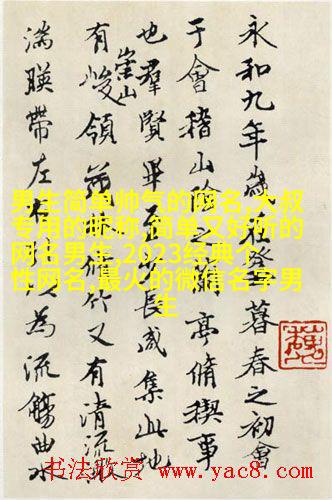 永和九年歲在癸丑暮春之初會
于會稽山陰之蘭亭脩禊事
也羣賢畢至少長咸集此地
有崇山峻領茂林脩竹又有清流激
湍暎帶左右引以為流觴曲水
男生简单帅气的网名,大叔
专用的昵称,简单又好听的
网名男生,2023经典个
性网名,最火的微信名字男
生
书法欣赏 www.yac8.com